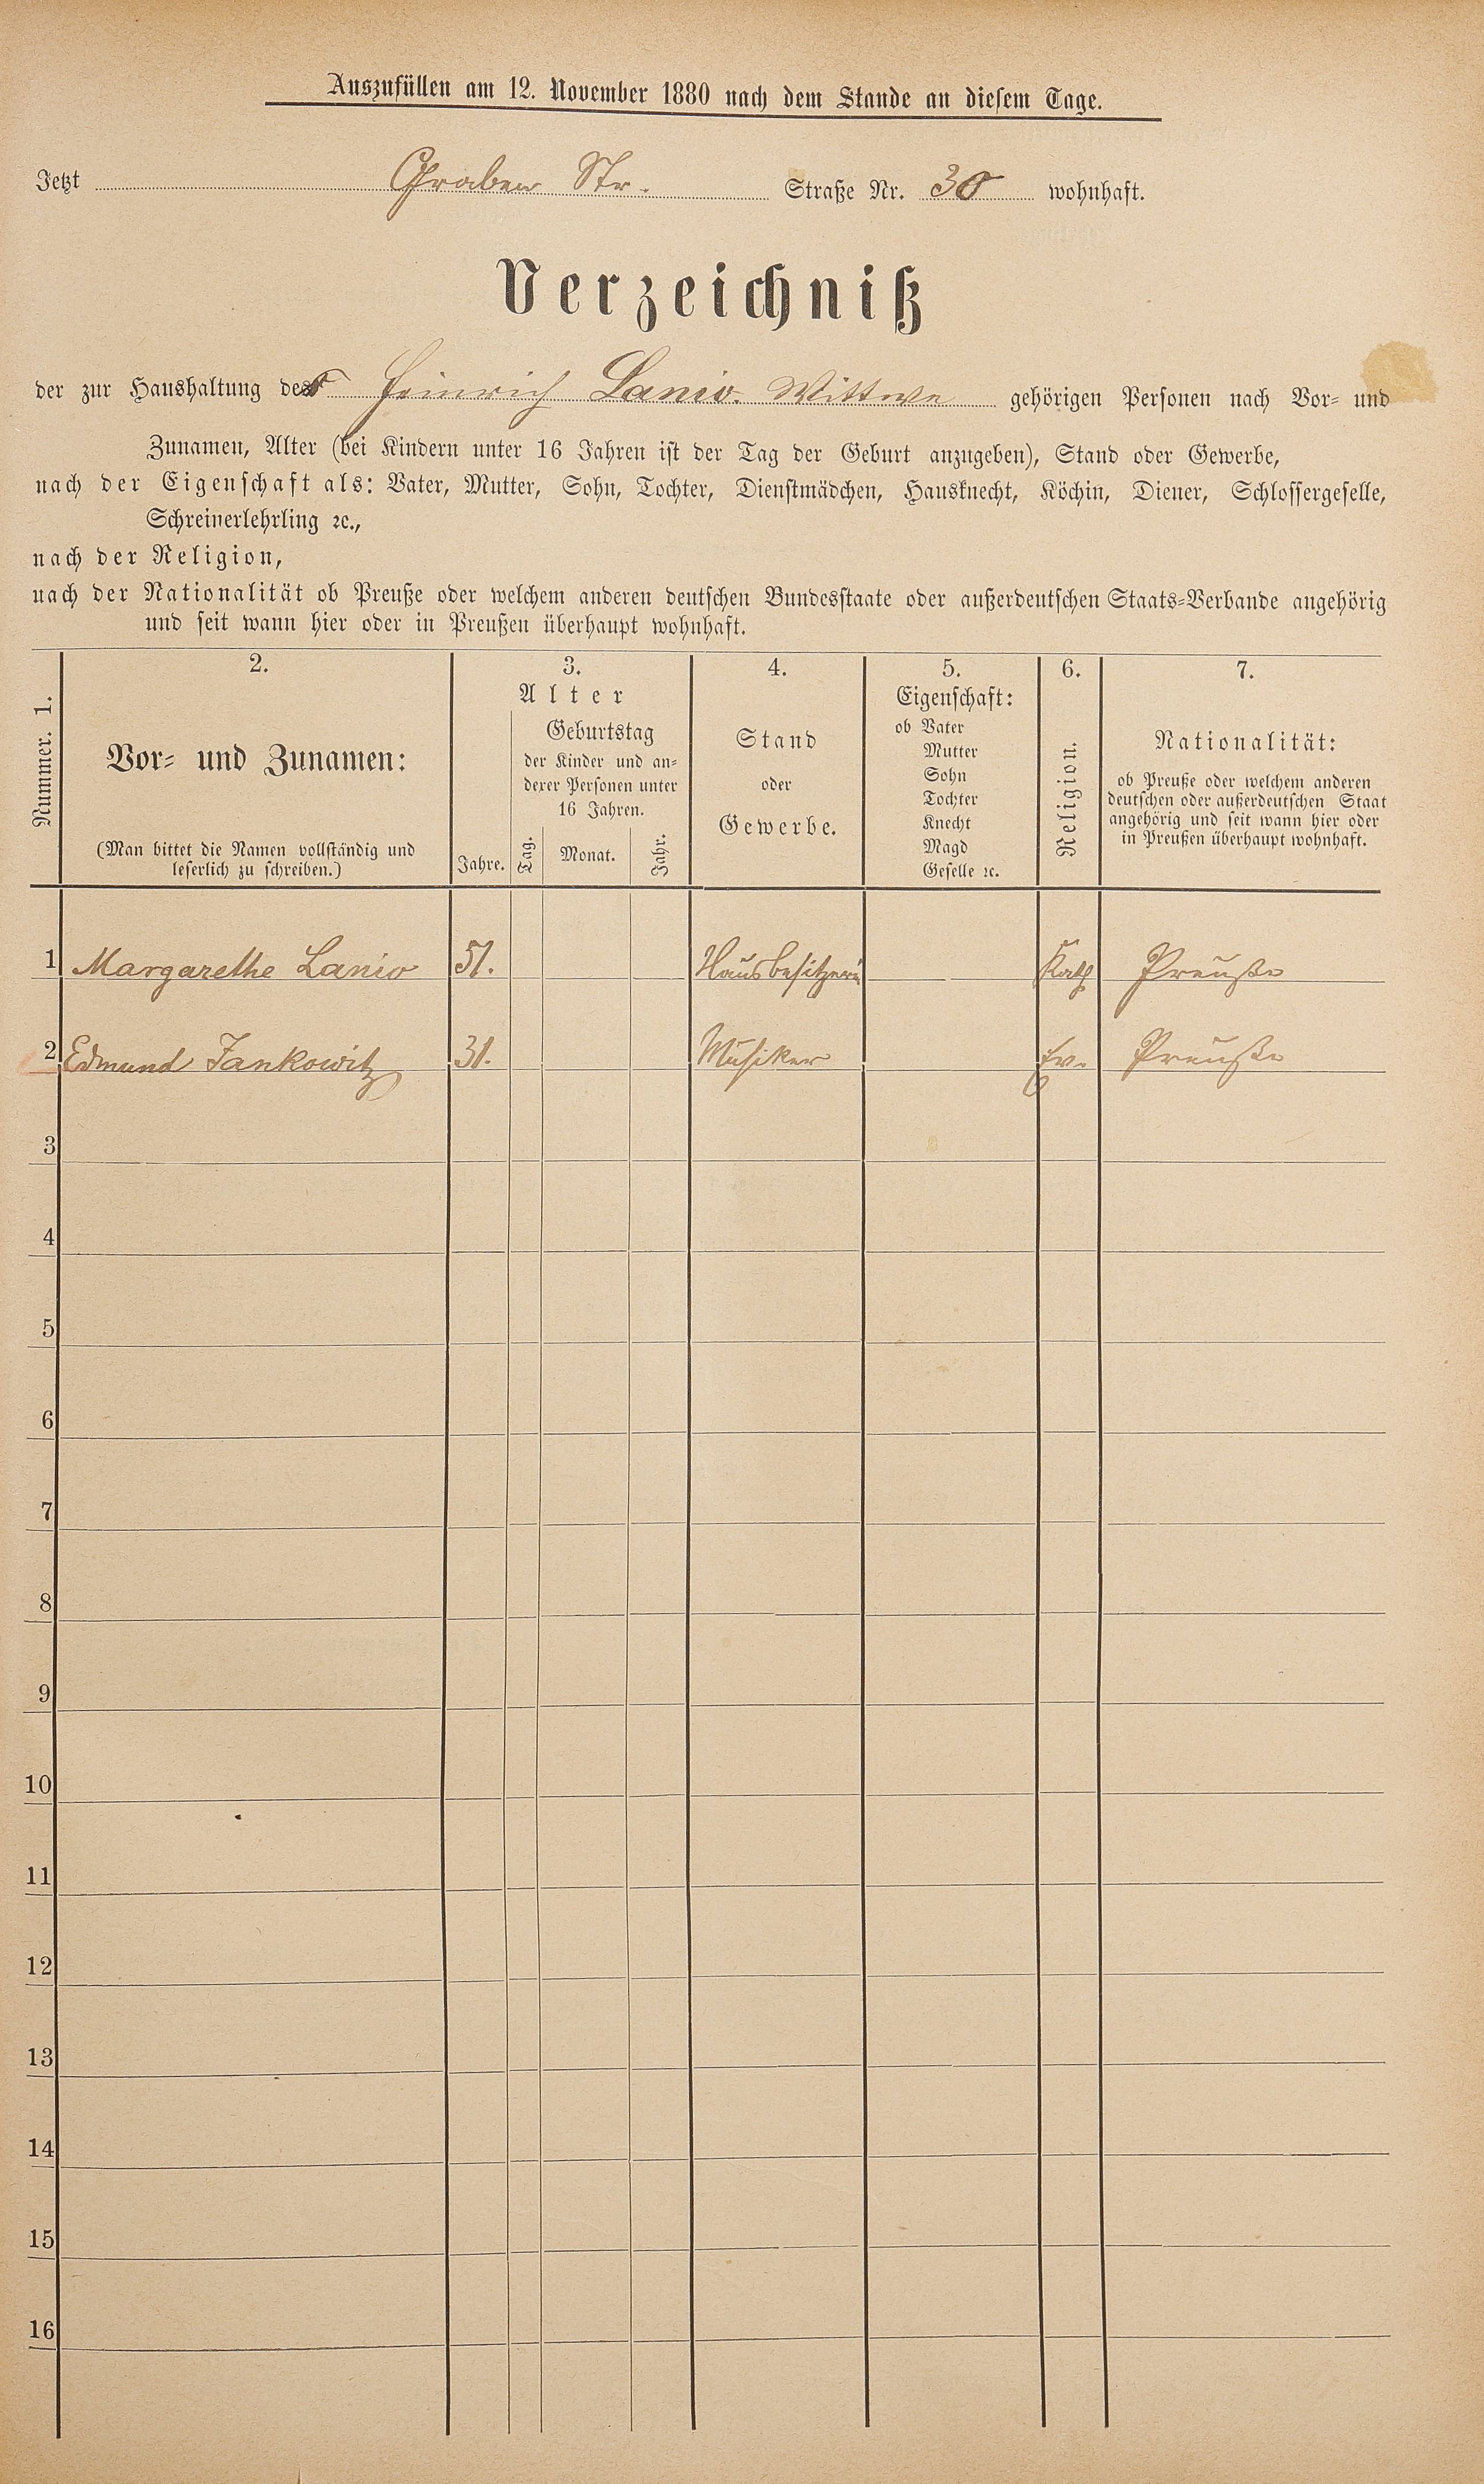 Auszufüllen am 12. November 1880 nach dem Stande an diesem Tage.
Jetzt Graben Str. Straße Nr. 30 wohnhaft.
Verzeichniß
der zur Haushaltung der Heinrich Lanio. Wittwe gehörigen Personen nach Vor- und
Zunamen, Alter (bei Kindern unter 16 Jahren ist der Tag der Geburt anzugeben), Stand oder Gewerbe,
nach der Eigenschaft als: Vater, Mutter, Sohn, Tochter, Dienstmädchen, Hausknecht, Köchin, Diener, Schlossergeselle,
Schreinerlehrling ꝛc.,
nach der Religion,
nach der Nationalität ob Preuße oder welchem anderen deutschen Bundesstaate oder außerdeutschen Staats-Verbande angehörig
und seit wann hier oder in Preußen überhaupt wohnhaft.
Nummer. 1.
2.
Vor- und Zunamen:
(Man bittet die Namen vollständig und
leserlich zu schreiben.)
3.
Alter
Jahre.
Geburtstag
der Kinder und an-
derer Personen unter
16 Jahren.
Tag. Monat. Jahr.
4.
Stand
oder
Gewerbe.
5.
Eigenschaft:
ob Vater
Mutter
Sohn
Tochter
Knecht
Magd
Geselle ꝛc.
6.
Religion.
7.
Nationalität:
ob Preuße oder welchem anderen
deutschen oder außerdeutschen Staat
angehörig und seit wann hier oder
in Preußen überhaupt wohnhaft.
1 Margarethe Lanio 51. Hausbesitzerin Kath Preuße
2 Edmund Jankowitz 31. Musiker Ev. Preuße
3
4
5
6
7
8
9
10
11
12
13
14
15
16